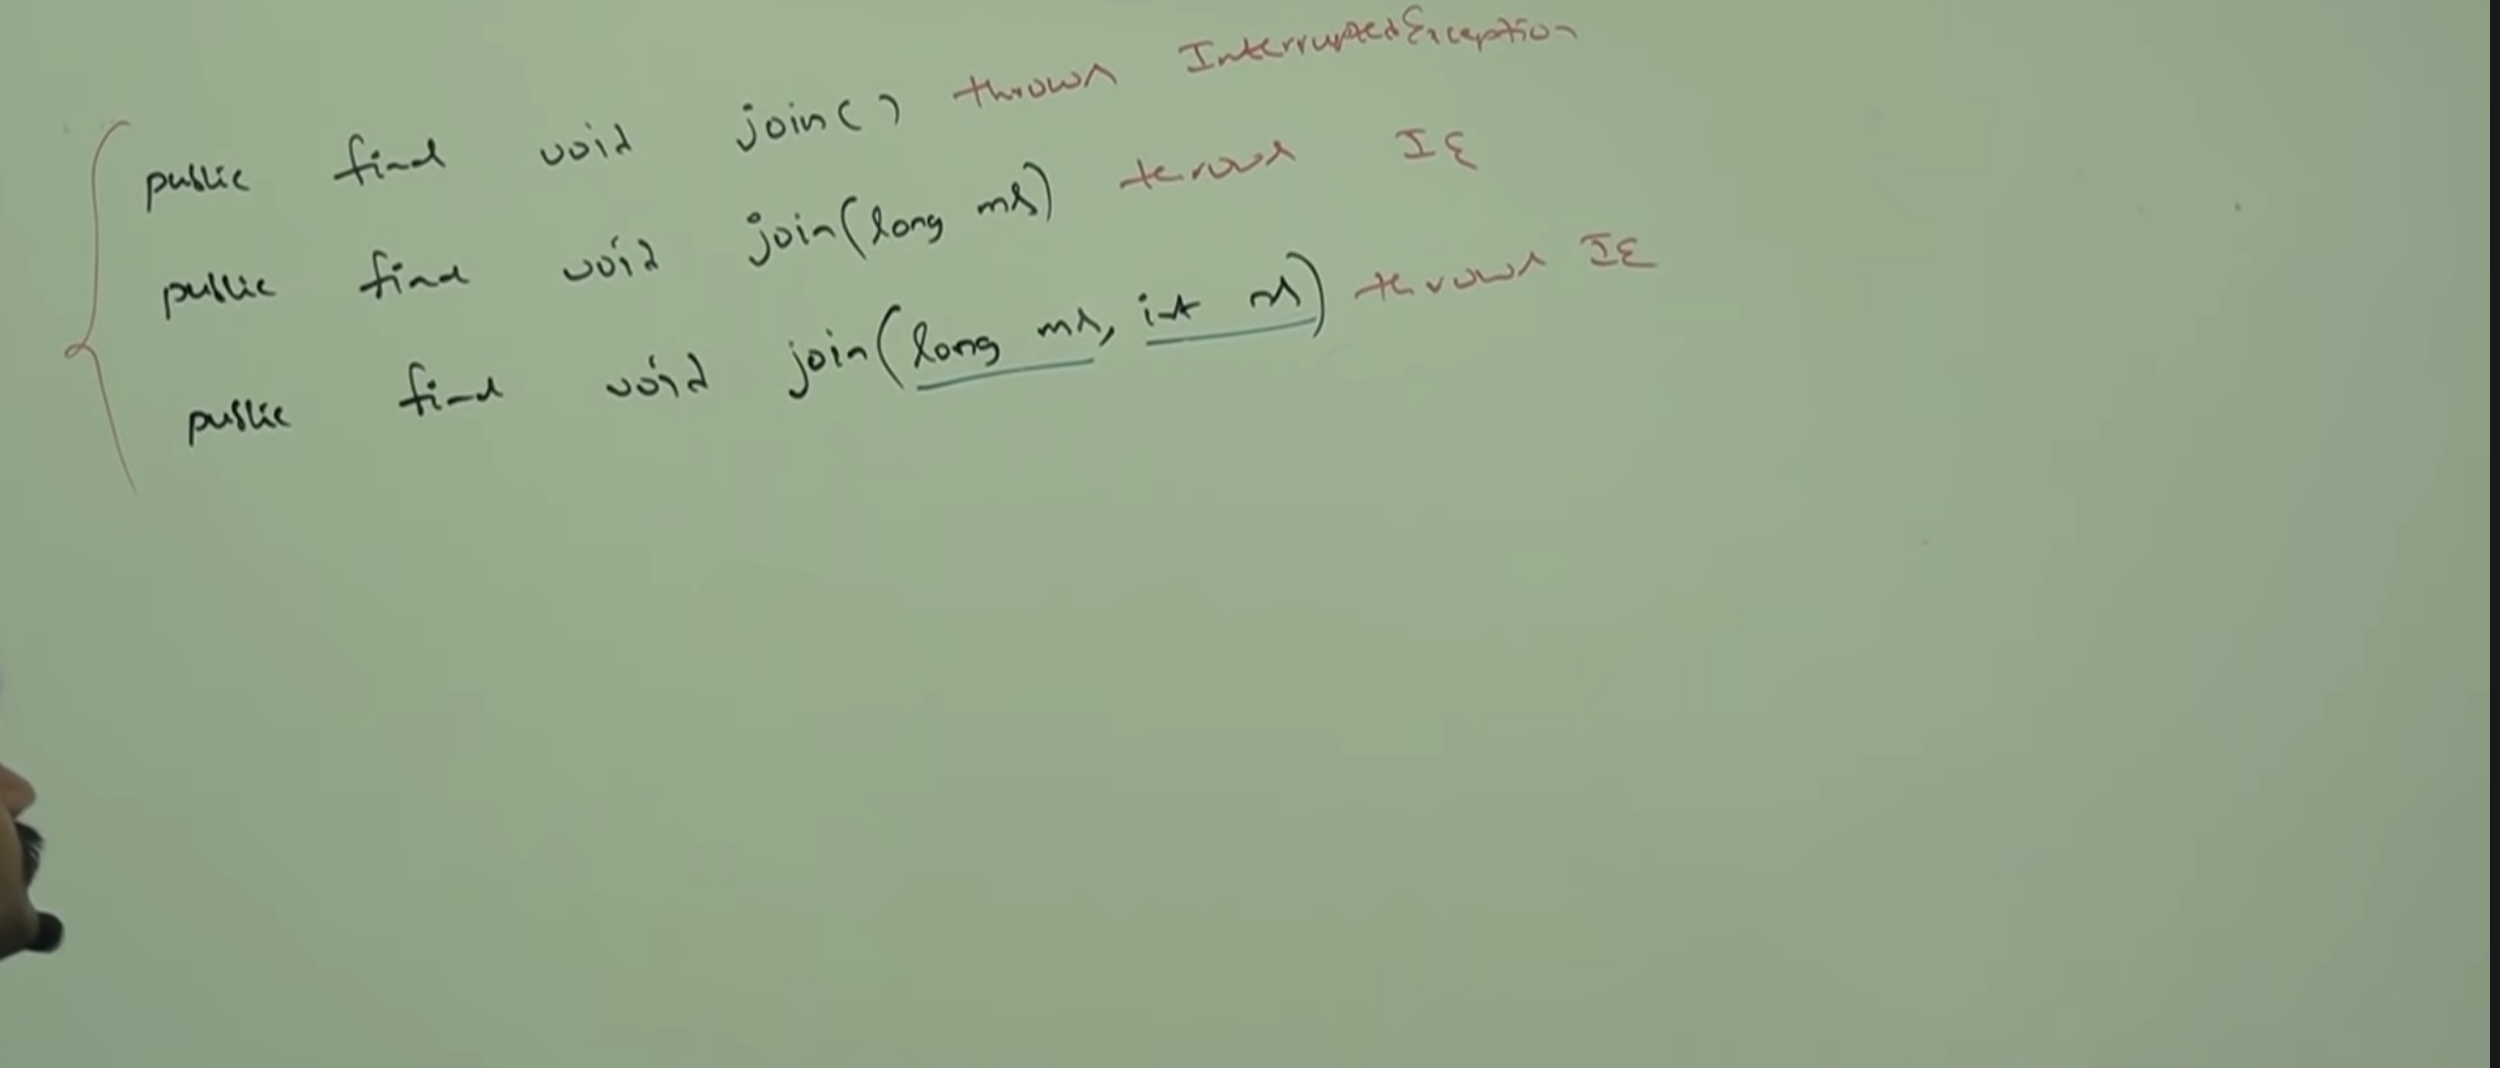 public final void join() throws InterruptedException
public final void join(long ms) throws IE
public final void join(long ms, int ns) throws IE